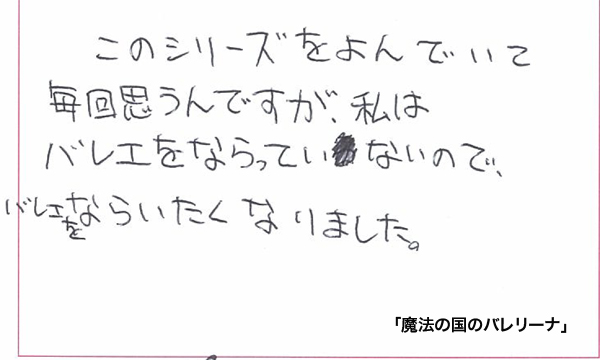 このシリーズをよんでいて
毎回思うんですが、私は
バレエをならっていないので、
バレエをならいたくなりました。
「魔法の国のバレリーナ」